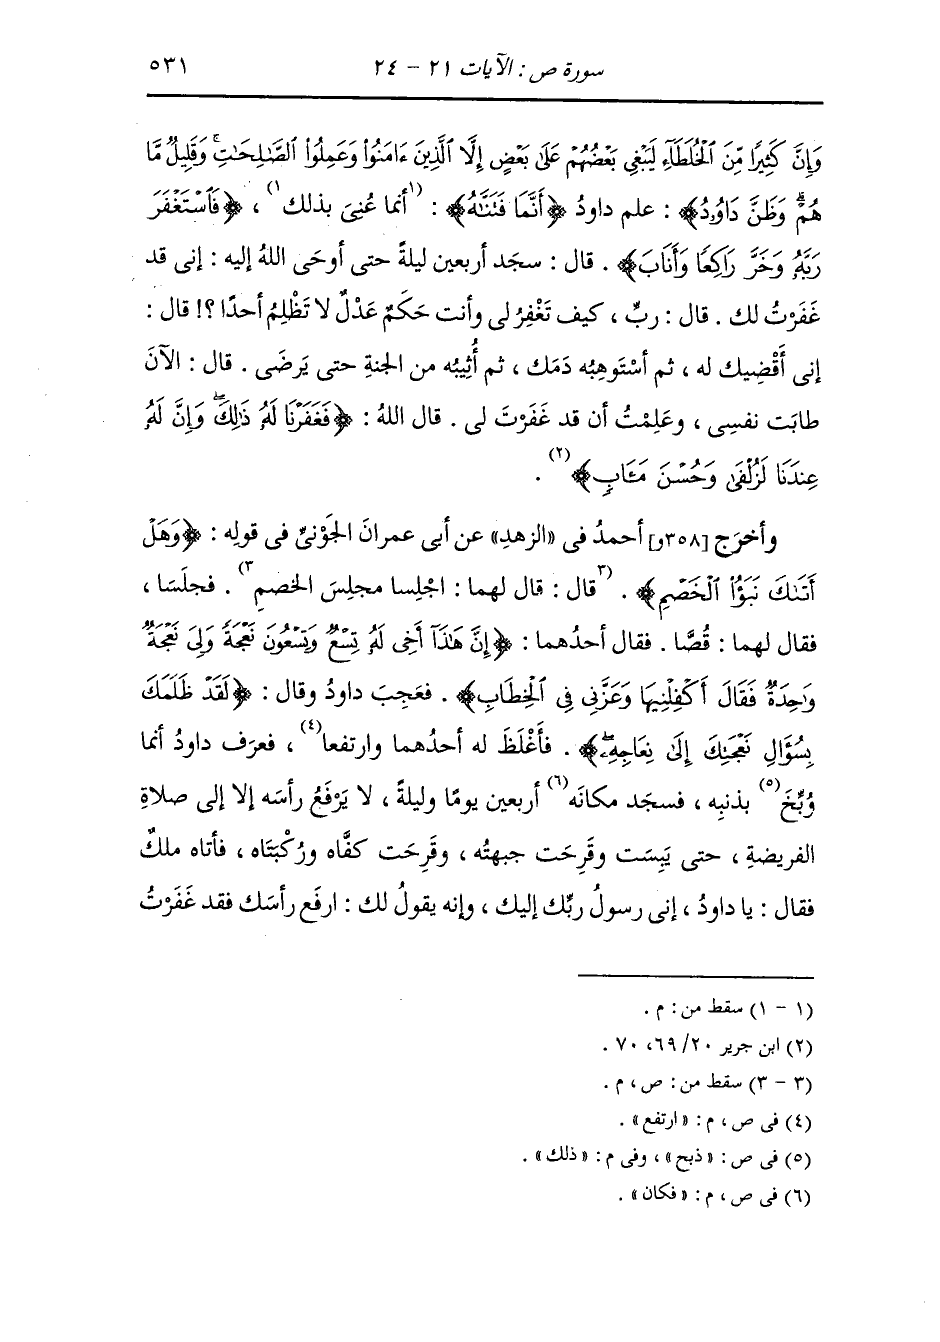 سورة ص : الآيات ٢١ - ٢٤ ٥٣١
وَإِنَّ كَثِيرًا مِّنَ ٱلْخُلَطَآءِ لَيَبْغِى بَعْضُهُمْ عَلَىٰ بَعْضٍ إِلَّا ٱلَّذِينَ ءَامَنُوا۟ وَعَمِلُوا۟ ٱلصَّٰلِحَٰتِ وَقَلِيلٌ مَّا
هُمْ ۗ وَظَنَّ دَاوُۥدُ﴾ : علم داودُ ﴿أَنَّمَا فَتَنَّٰهُ﴾ : (١أنما عُنىَ بذلك١) ، ﴿فَٱسْتَغْفَرَ
رَبَّهُۥ وَخَرَّ رَاكِعًا وَأَنَابَ﴾ . قال : سجَد أربعين ليلةً حتى أوحَى اللهُ إليه : إنى قد
غَفَرْتُ لك . قال : ربِّ ، كيف تَغْفِرُ لى وأنت حَكَمٌ عَدْلٌ لا تَظْلِمُ أحدًا ؟! قال :
إنى أَقْضِيك له ، ثم أسْتَوهِبُه دَمَك ، ثم أُثِيبُه من الجنةِ حتى يَرضَى . قال : الآنَ
طابَت نفسِى ، وعَلِمْتُ أن قد غَفَرْتَ لى . قال اللهُ : ﴿فَغَفَرْنَا لَهُۥ ذَٰلِكَ ۖ وَإِنَّ لَهُۥ
عِندَنَا لَزُلْفَىٰ وَحُسْنَ مَـَٔابٍ﴾(٢) .
وأخرَج [٣٥٨و] أحمدُ فى «الزهدِ» عن أبى عمرانَ الجَوْنىِّ فى قولِه : ﴿وَهَلْ
أَتَىٰكَ نَبَؤُا۟ ٱلْخَصْمِ﴾ . (٣قال : قال لهما : اجْلِسا مجلِسَ الخصمِ٣) . فجلَسَا ،
فقال لهما : قُصَّا . فقال أحدُهما : ﴿إِنَّ هَٰذَآ أَخِى لَهُۥ تِسْعٌ وَتِسْعُونَ نَعْجَةً وَلِىَ نَعْجَةٌ
وَٰحِدَةٌ فَقَالَ أَكْفِلْنِيهَا وَعَزَّنِى فِى ٱلْخِطَابِ﴾ . فعجِبَ داودُ وقال : ﴿لَقَدْ ظَلَمَكَ
بِسُؤَالِ نَعْجَتِكَ إِلَىٰ نِعَاجِهِۦ ۖ﴾ . فأَغْلَظَ له أحدُهما وارتفعا(٤) ، فعرَف داودُ أنما
وُبِّخَ(٥) بذنبِه ، فسجَد مكانَه(٦) أربعين يومًا وليلةً ، لا يَرْفَعُ رأسَه إلا إلى صلاةِ
الفريضةِ ، حتى يَبِسَت وقَرِحَت جبهتُه ، وقَرِحَت كفَّاه ورُكْبَتَاه ، فأتاه ملكٌ
فقال : يا داودُ ، إنى رسولُ ربِّك إليك ، وإنه يقولُ لك : ارفَع رأسَك فقد غَفَرْتُ
(١ - ١) سقط من : م .
(٢) ابن جرير ٢٠/ ٦٩، ٧٠ .
(٣ - ٣) سقط من : ص ، م .
(٤) فى ص ، م : «ارتفع» .
(٥) فى ص : «ذبح» ، وفى م : «ذلك» .
(٦) فى ص ، م : «فكان» .